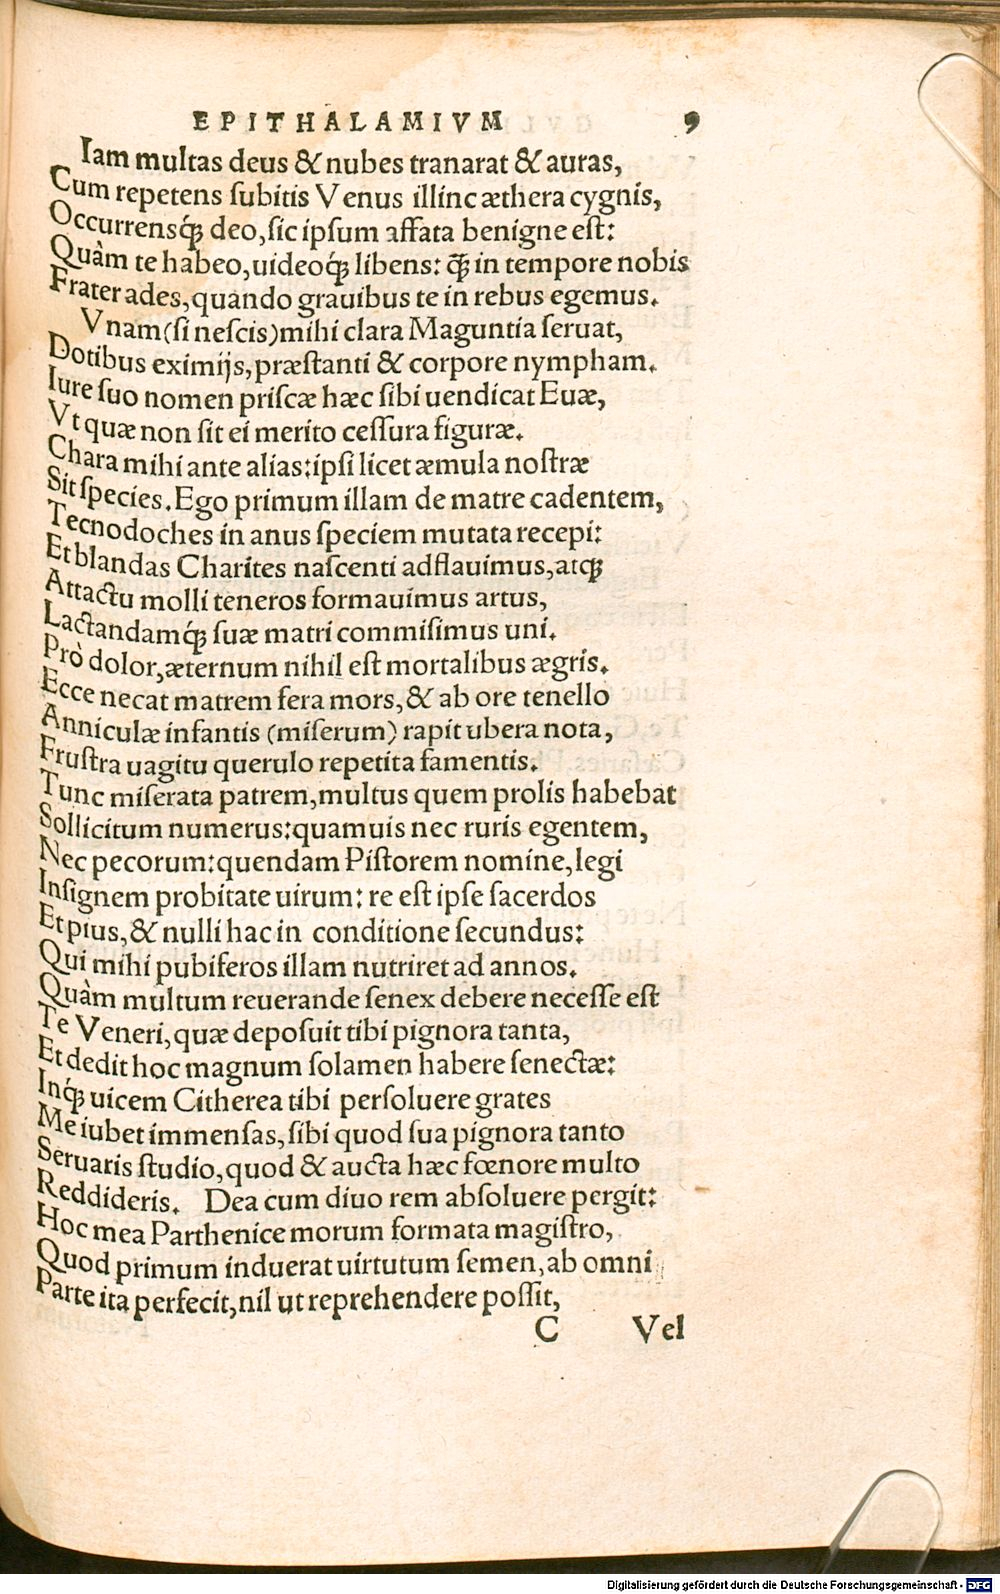 EPITHALAMIVM 9
Iam multas deus & nubes tranarat & auras,
Cum repetens ſubitis Venus illinc æthera cygnis,
Occurrensq́ꝫ deo, ſic ipſum affata benigne eſt:
Quàm te habeo, uideoq́ꝫ libens: ꝙ̃ in tempore nobis
Frater ades, quando grauibus te in rebus egemus.
Vnam (ſi neſcis) mihi clara Maguntia ſeruat,
Dotibus eximijs, præſtanti & corpore nympham.
Iure ſuo nomen priſcæ hæc ſibi uendicat Euæ,
Vt quæ non ſit ei merito ceſſura figuræ.
Chara mihi ante alias: ipſi licet æmula noſtræ
Sit ſpecies. Ego primum illam de matre cadentem,
Tecnodoches in anus ſpeciem mutata recepi:
Et blandas Charites naſcenti adflauimus, atqꝫ
Attactu molli teneros formauimus artus,
Lactandamq́ꝫ ſuæ matri commiſimus uni.
Prò dolor, æternum nihil eſt mortalibus ægris.
Ecce necat matrem fera mors, & ab ore tenello
Anniculæ infantis (miſerum) rapit ubera nota,
Fruſtra uagitu querulo repetita famentis.
Tunc miſerata patrem, multus quem prolis habebat
Sollicitum numerus: quamuis nec ruris egentem,
Nec pecorum: quendam Piſtorem nomine, legi
Inſignem probitate uirum: re eſt ipſe ſacerdos
Et pius, & nulli hac in conditione ſecundus:
Qui mihi pubiferos illam nutriret ad annos.
Quàm multum reuerande ſenex debere neceſſe eſt
Te Veneri, quæ depoſuit tibi pignora tanta,
Et dedit hoc magnum ſolamen habere ſenectæ:
Inq́ꝫ uicem Citherea tibi perſoluere grates
Me iubet immenſas, ſibi quod ſua pignora tanto
Seruaris ſtudio, quod & aucta hæc fœnore multo
Reddideris. Dea cum diuo rem abſoluere pergit:
Hoc mea Parthenice morum formata magiſtro,
Quod primum induerat uirtutum ſemen, ab omni
Parte ita perfecit, nil ut reprehendere poſſit,
C Vel
Digitalisierung gefördert durch die Deutsche Forschungsgemeinschaft - DFG